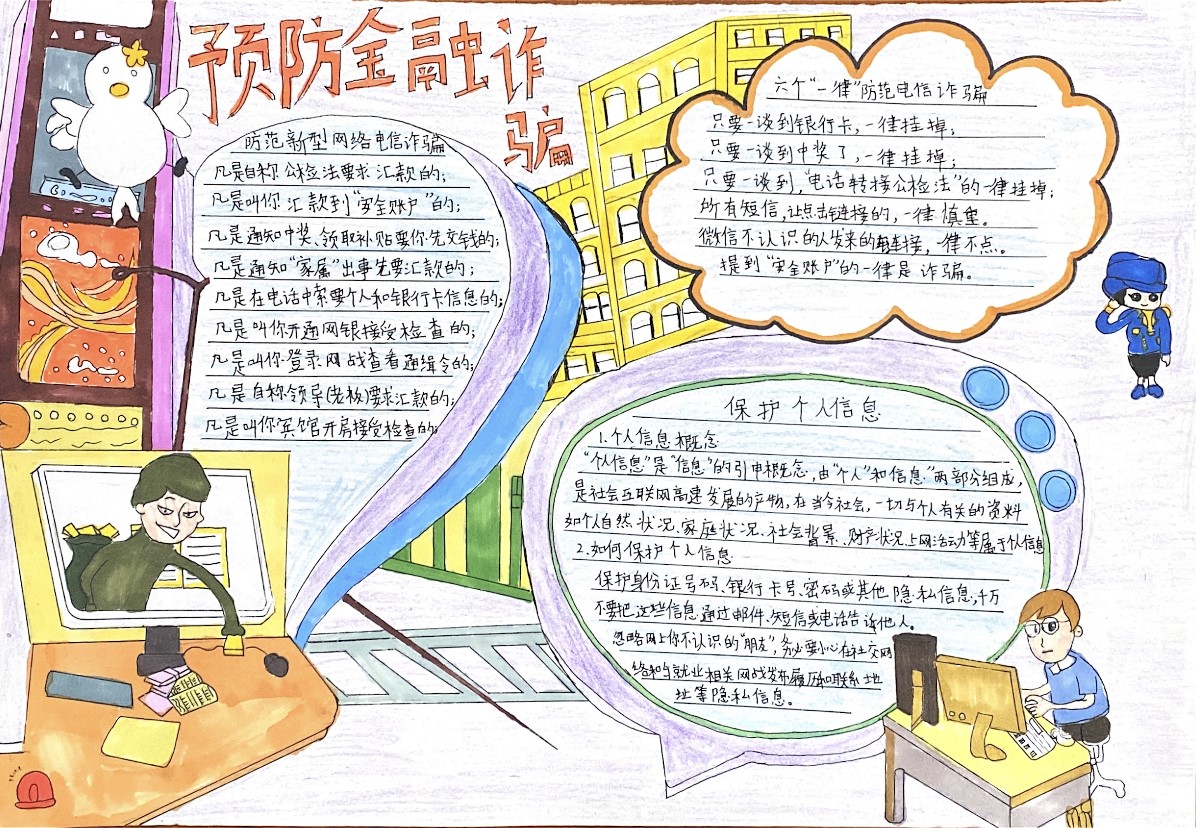 预防金融诈
骗
防范新型网络电信诈骗
凡是自称公检法要求汇款的;
凡是叫你汇款到“安全账户”的;
凡是通知中奖、领取补贴要你先交钱的;
凡是通知“家属”出事先要汇款的;
凡是在电话中索要个人和银行卡信息的;
凡是叫你开通网银接受检查的;
凡是叫你登录网战查看通缉令的;
凡是自称领导(老板)要求汇款的;
凡是叫你宾馆开房接受检查的
六个“一律”防范电信诈骗
只要一谈到银行卡,一律挂掉;
只要一谈到中奖了,一律挂掉;
只要一谈到,“电话转接公检法”的一律挂掉;
所有短信,让点击链接的,一律慎重。
微信不认识的人发来的链接,一律不点。
提到“安全账户”的一律是诈骗。
保护个人信息
1.个人信息概念
“个人信息”是“信息”的引申概念,由“个人”和信息”两部分组成,
是社会互联网高速发展的产物,在当今社会,一切与个人有关的资料
如个人自然状况、家庭状况、社会背景、财产状况上网活动等属于个人信息
2.如何保护个人信息
保护身份证号码、银行卡号、密码或其他隐私信息,千万
不要把这些信息通过邮件、短信或电话告诉他人。
忽略网上你不认识的“朋友”,务必要小心在社交网
络和与就业相关网战发布履历和联系地
址等隐私信息。